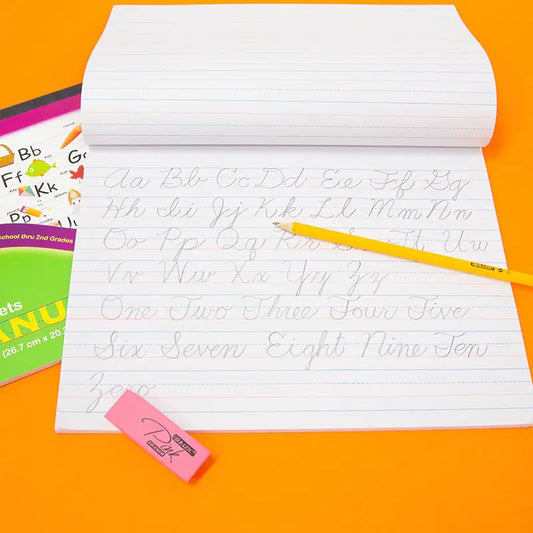 Aa Bb Cc Dd Ee Ff Gg
Hh Ii Jj Kk Ll Mm Nn
Oo Pp Qq Rr Ss Tt Uu
Vv Ww Xx Yy Zz
One Two Three Four Five
Six Seven Eight Nine Ten
Zero
Bb
Ff Kk
School thru 2nd Grades
(26.7 cm x 20.
BAZIC
BAZIC
Pink
ERASER